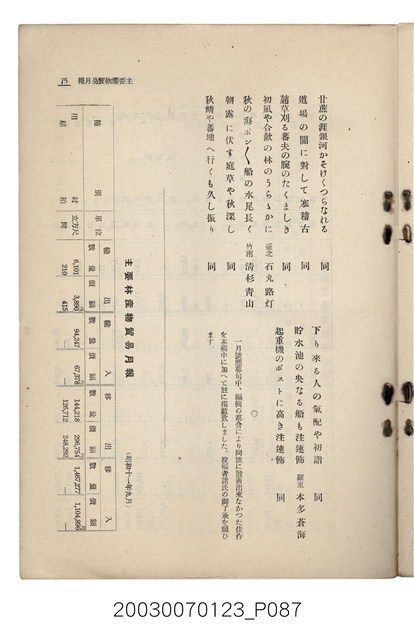 甘蔗の涯銀河かそけくつらなれる 同
道場の闇に對して寒稽古 同
初凪や合歡の林のうらゝかに 臺北 石丸路灯
秋の海ポン〳〵船の水尾長く 竹南 清杉青山
朝露に伏す庭草や秋深し 同
秋晴や蕃地へ行くも久し振り 同
下り來る人の氣配や初詣 同
貯水池の央なる船も注連飾 羅東 本多蒼海
起重機のポストに高き注連飾 同
○
一月號應募句中、編輯の都合により同號に發表出來なかつた佳作
を本稿中に加へて玆に掲載致しました。投稿者諸氏の御了承を願ひ
ます
主要林產物貿易月報
75
主要林產物貿易月報
(昭和十一年九月)
種別 單位 輸出 輸入 移出 移入
數量 價額 數量 價額 數量 價額 數量 價額
用材 立方尺 6,101 3,890 94,247 67,378 144,218 296,754 1,467,277 1,104,896
210 415 — — 126,712 248,292 — —
20030070123_P087